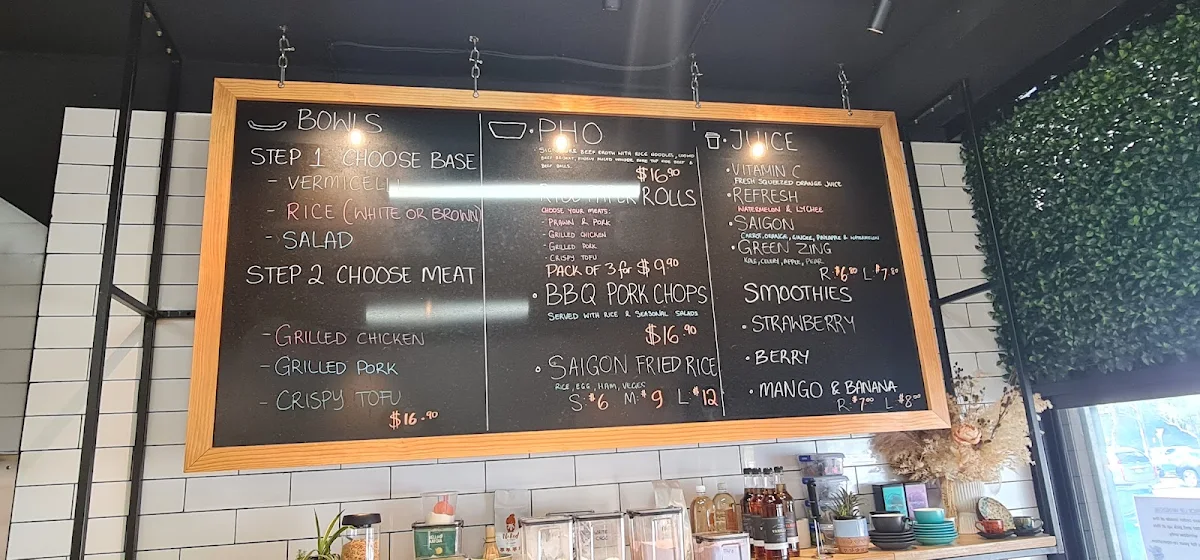 BOWLS
STEP 1 CHOOSE BASE
- VERMICELLI
- RICE (WHITE OR BROWN)
- SALAD
STEP 2 CHOOSE MEAT
- GRILLED CHICKEN
- GRILLED PORK
- CRISPY TOFU
$16.90
PHO
BEEF BROTH WITH RICE NOODLES,
BEEF BALLS.
$16.90
ROLLS
CHOOSE YOUR MEATS:
- PRAWN & PORK
- GRILLED CHICKEN
- GRILLED PORK
- CRISPY TOFU
PACK OF 3 for $9.90
• BBQ PORK CHOPS
SERVED WITH RICE & SEASONAL SALADS
$16.90
• SAIGON FRIED RICE
RICE, EGG, HAM, VEGIES
S $6 M $9 L $12
JUICE
• VITAMIN C
FRESH SQUEEZED ORANGE JUICE
• REFRESH
WATERMELON & LYCHEE
• SAIGON
CARROT, ORANGE, GINGER, PINEAPPLE & WATERMELON
• GREEN ZING
KALE, CELERY, APPLE, PEAR
R $6.80 L $7.80
SMOOTHIES
• STRAWBERRY
• BERRY
• MANGO & BANANA
R $7.00 L $8.00